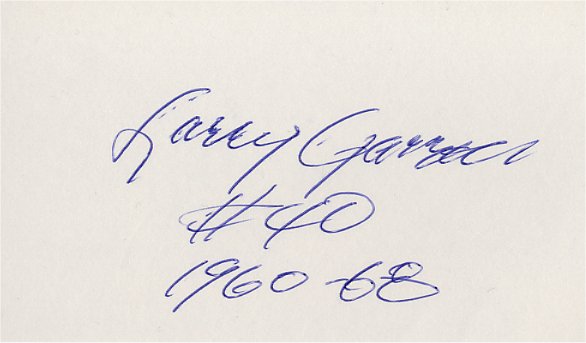 Larry Garron
#40
1960-68